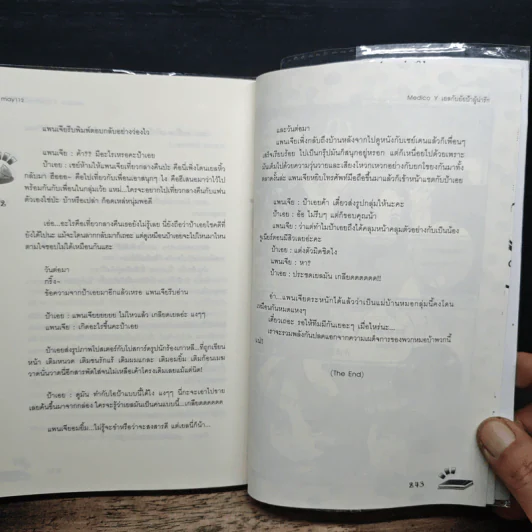 กาฝาวาว
แพนเจียรีบพิมพ์ตอบกลับอย่างว่องไว
แพนเจีย : ค้า?? มีอะไรเหรอคะป้าเอย
ป้าเอย : เชย์ห้ามให้แพนเจียเที่ยวกลางคืนปะ คือนี่เพิ่งโดนเยลหิ้ว
กลับมา ฮืออออ~ คือไปเที่ยวกับเพื่อนเอาสนุกๆ ไง คืออีเลนเมาว่าไว้ไป
พร้อมกันกับเพื่อนในกลุ่มเว้ย แหม่...ใครจะอยากไปเที่ยวกลางคืนกับแฟน
ตัวเองใช่ปะ บ้าหรือเปล่า ก็อดเหล่หนุ่มพอดี
เอ่อ...อะไรคือเที่ยวกลางคืนเธอยังไม่รู้เลย นี่ยังถือว่าป้าเอยโชคดีที่
ยังได้ไปนะ แม้จะโดนลากกลับมาก็เถอะ แต่ดูเหมือนป้าเอยจะไปไหนมาไหน
ตามใจชอบไม่ได้เหมือนกันแฮะ
วันต่อมา
กริ๊ง~
ข้อความจากป้าเอยมาอีกแล้วเหรอ แพนเจียรีบอ่าน
ป้าเอย : แพนเจียยยยยย ไม่ไหวแล้ว เกลียดเยลอ่ะ แงๆๆ
แพนเจีย : เกิดอะไรขึ้นคะป้าเอย
ป้าเอยส่งรูปภาพโปสเตอร์กับโปสการ์ดรูปนักร้องเกาหลี...ที่ถูกเขียน
หน้า เติมหนวด เติมขนรักแร้ เติมนมแกละ เติมอมยิ้ม เติมก้อนเมฆ
ป้าเอย : ดูมัน ทำกับไอป้าแบบนี้ได้ไง แงๆๆ นี่กะจะเอาไปขาย
เลยค้นขึ้นมาจากกล่อง ใครจะรู้ว่าเยลมันเป็นคนแบบนี้...เกลียดดดดดด
แพนเจียอมยิ้ม...ไม่รู้จะขำหรือว่าจะสงสารดี แต่เยลนี่ก็น้า...
Medica Y. เยลกับยัยป้าผู้น่ารัก
และวันต่อมา
แพนเจียเพิ่งกลับถึงบ้านหลังจากไปดูหนังกับเชย์เดนแล้วก็เพื่อนๆ
เสร็จเรียบร้อย ไปเป็นกรุ๊ปมันก็สนุกอยู่หรอก แต่ก็เหนื่อยไปด้วยเพราะ
เดินเต็มไปด้วยความวุ่นวายและเสียงโหวกเหวกอย่างกับยกโขยงกันมาทั้ง
ตลาดงั้นล่ะ แพนเจียหยิบโทรศัพท์มือถือขึ้นมาแล้วก็เข้าหน้าแชตกับป้าเอย
แพนเจีย : ป้าเอยค้า เดี๋ยวส่งรูปกลุ่มให้นะคะ
ป้าเอย : อ้อ ไม่รีบๆ แต่ก็ขอบคุณน้า
แพนเจีย : ว่าแต่ทำไมป้าเอยถึงได้คลุมหน้าคลุมตัวอย่างกับเป็นน้อง
ป้าเอย : แต่งตัวมิดชิดไง
แพนเจีย : หา?
ป้าเอย : ประชดเยลมัน เกลียดดดดดด!!
อ่า...แพนเจียตระหนักได้แล้วว่าเป็นแม่บ้านหมอกลุ่มนี้คงโดน
เหมือนกันหมดแหงๆ
เดี๋ยวเถอะ รอให้ทีมมีกันเยอะๆ เมื่อไหร่นะ...
เราจะรวมพลังกันปลดแอกจากความเผด็จการของพวกหมอบ้าพวกนี้
(The End)
273